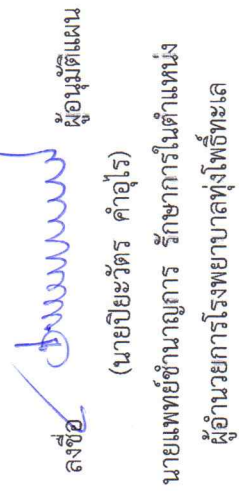 ลงชื่อ ผู้อนุมัติแผน
(นายปิยะวัตร คำอุไร)
นายแพทย์ชำนาญการ รักษาการในตำแหน่ง
ผู้อำนวยการโรงพยาบาลทุ่งโพธิ์ทะเล